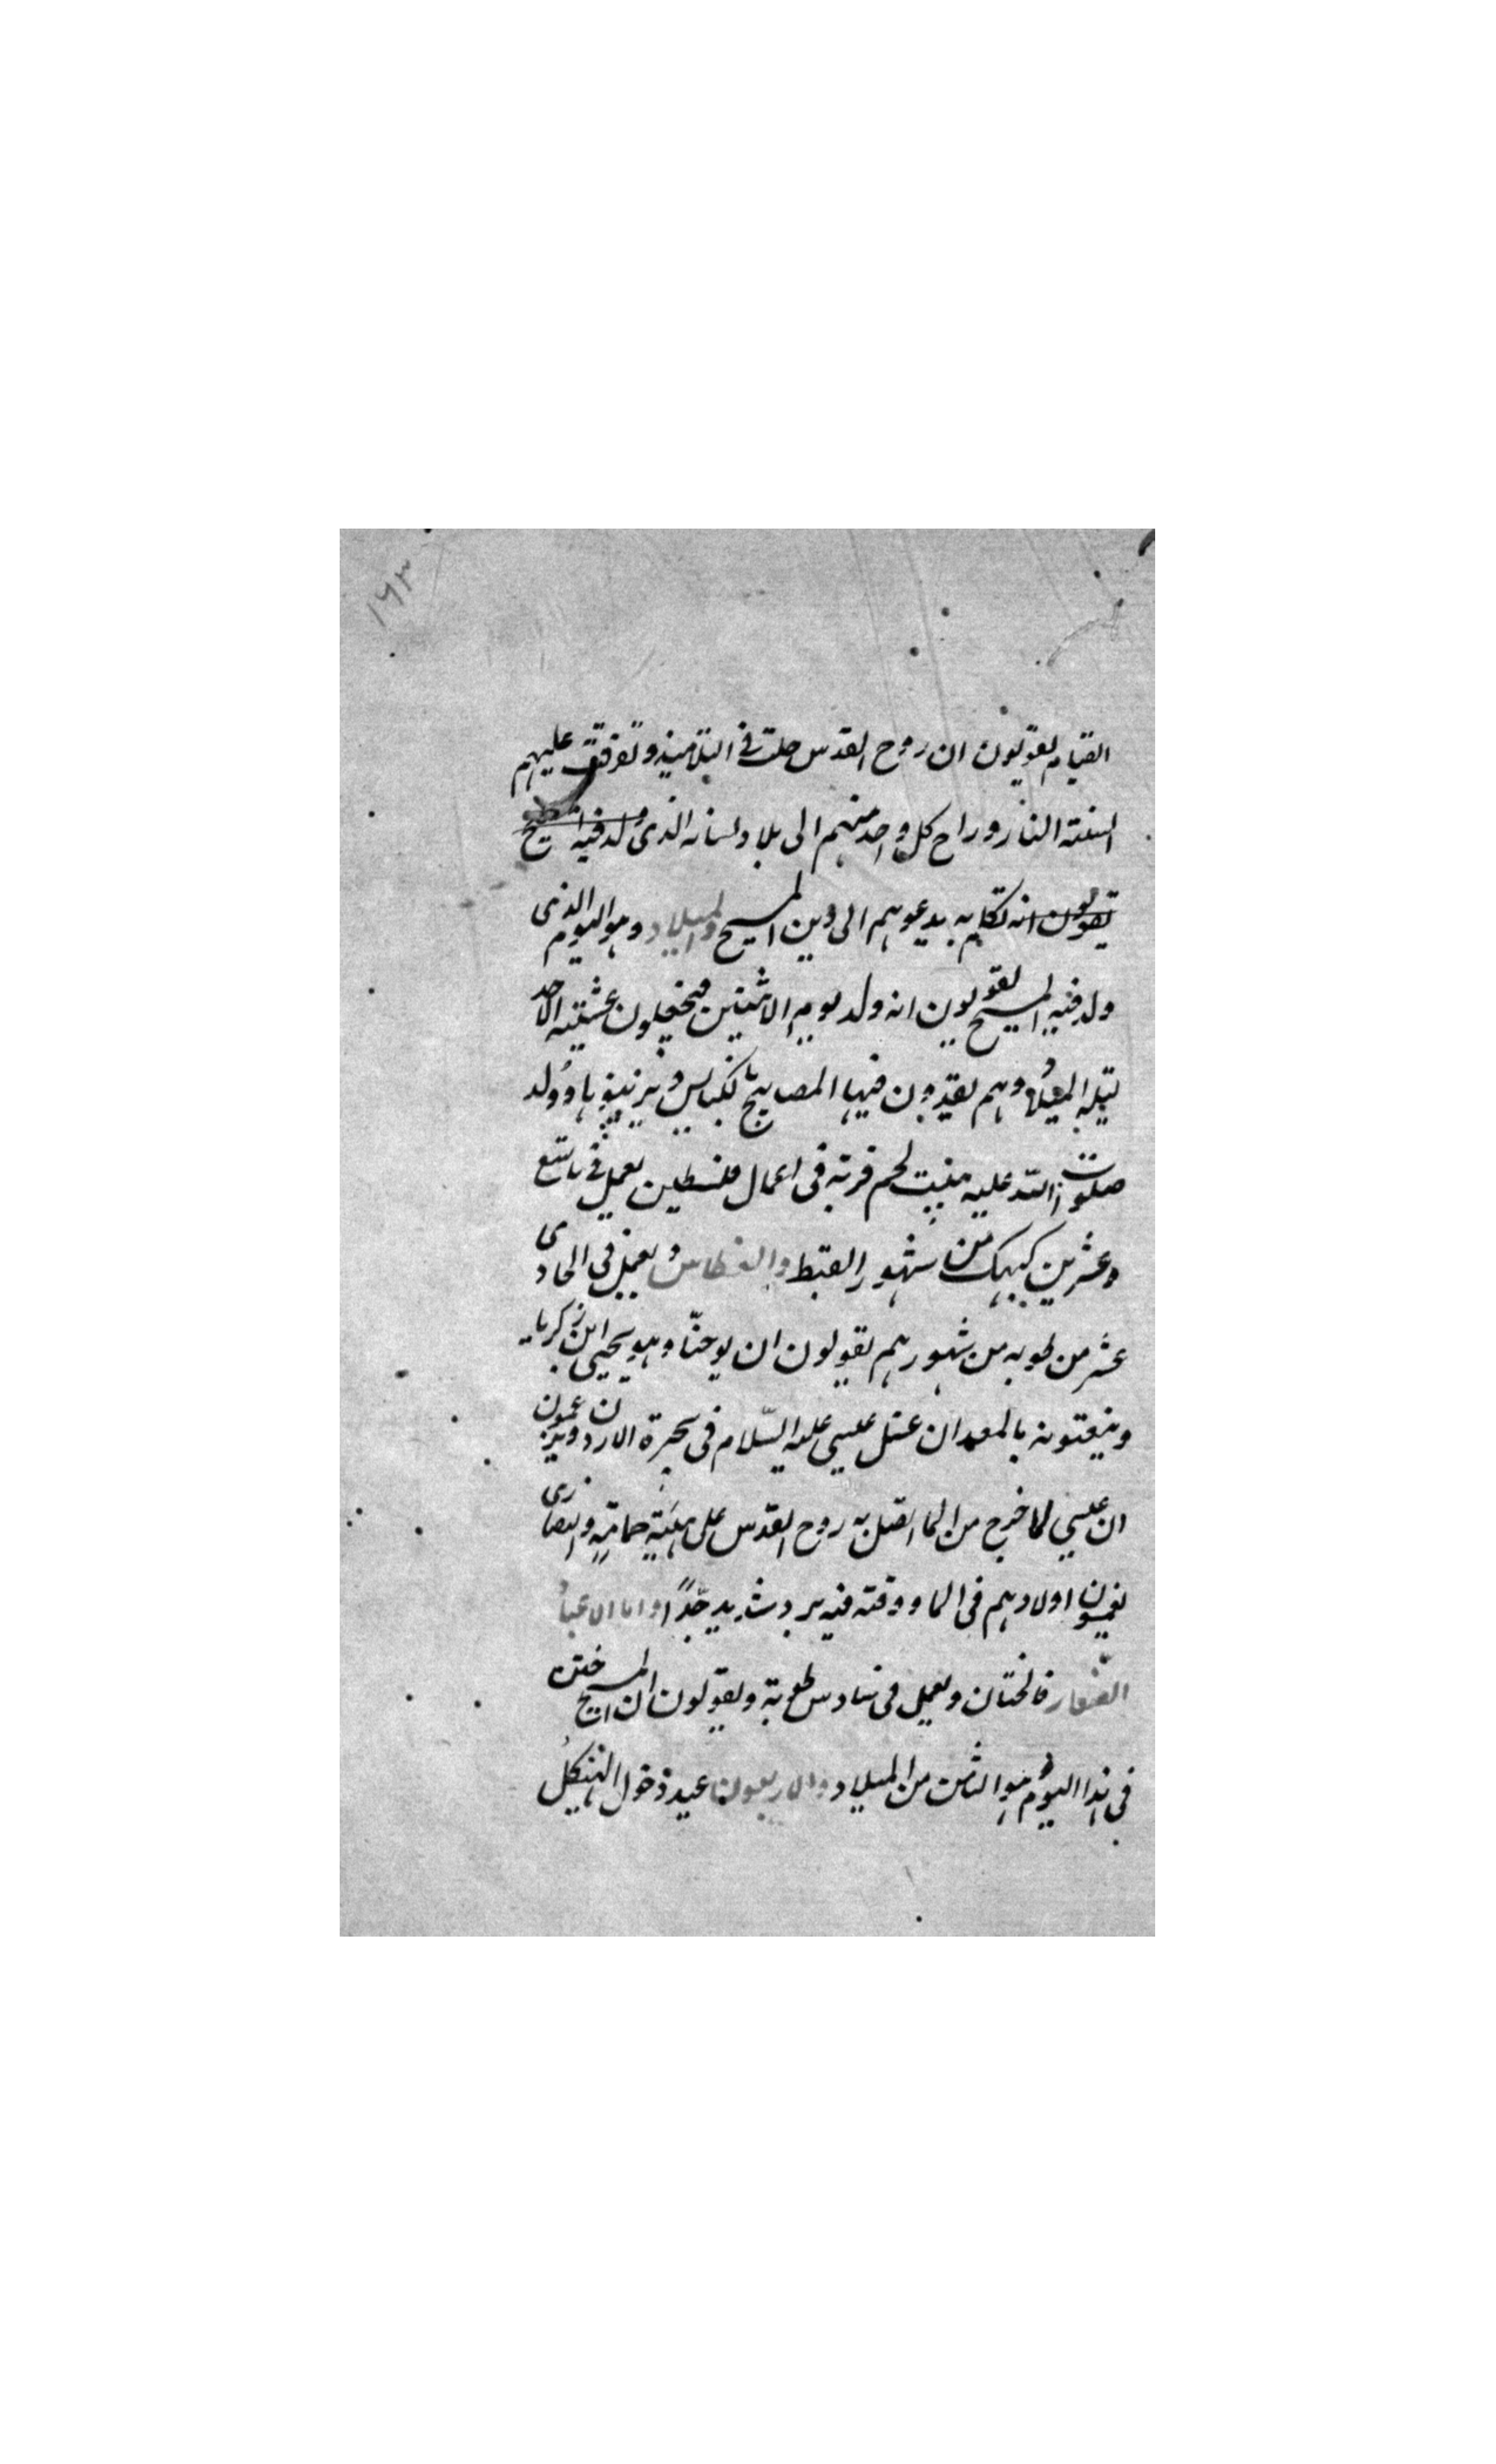 ١٦٣
القيام يقولون ان روح القدس حلت فى التلاميذ وتفرقت عليهم
السنة النار وراح كل واحد منهم الى بلاد لسانه الذى ولد فيه المسيح
يقولون انه تكلم به يدعوهم الى دين المسيح والميلاد وهو اليوم الذى
ولد فيه المسيح يقولون انه ولد يوم الاثنين فيجعلون عشية الاحد
ليلة الميلاد وهم يقدون فيها المصابيح بالكنايس ويزينونها وولد
صلوات الله عليه ببيت لحم قرية فى اعمال فلسطين يعمل فى تاسع
وعشرين كيهك من شهور القبط والغطاس ويعمل فى الحادى
عشر من طوبه من شهورهم يقولون ان يوحنّا وهو يحيى ابن زكريا
وينعتونه بالمعمدان غسل عيسى عليه السّلام فى بحيرة الاردن ويزعمون
ان عيسى لما خرج من الما اتصل به روح القدس على هيئة حمامة والنصارى
يغمسون اولادهم فى الما ووقته فيه برد شديد جدًا واما الاعياد
الصّغار فالختان ويعمل فى سادس طوبة ويقولون ان المسيح ختن
فى هذا اليوم وهو الثامن من الميلاد والاربعون عيد دخول الهيكل